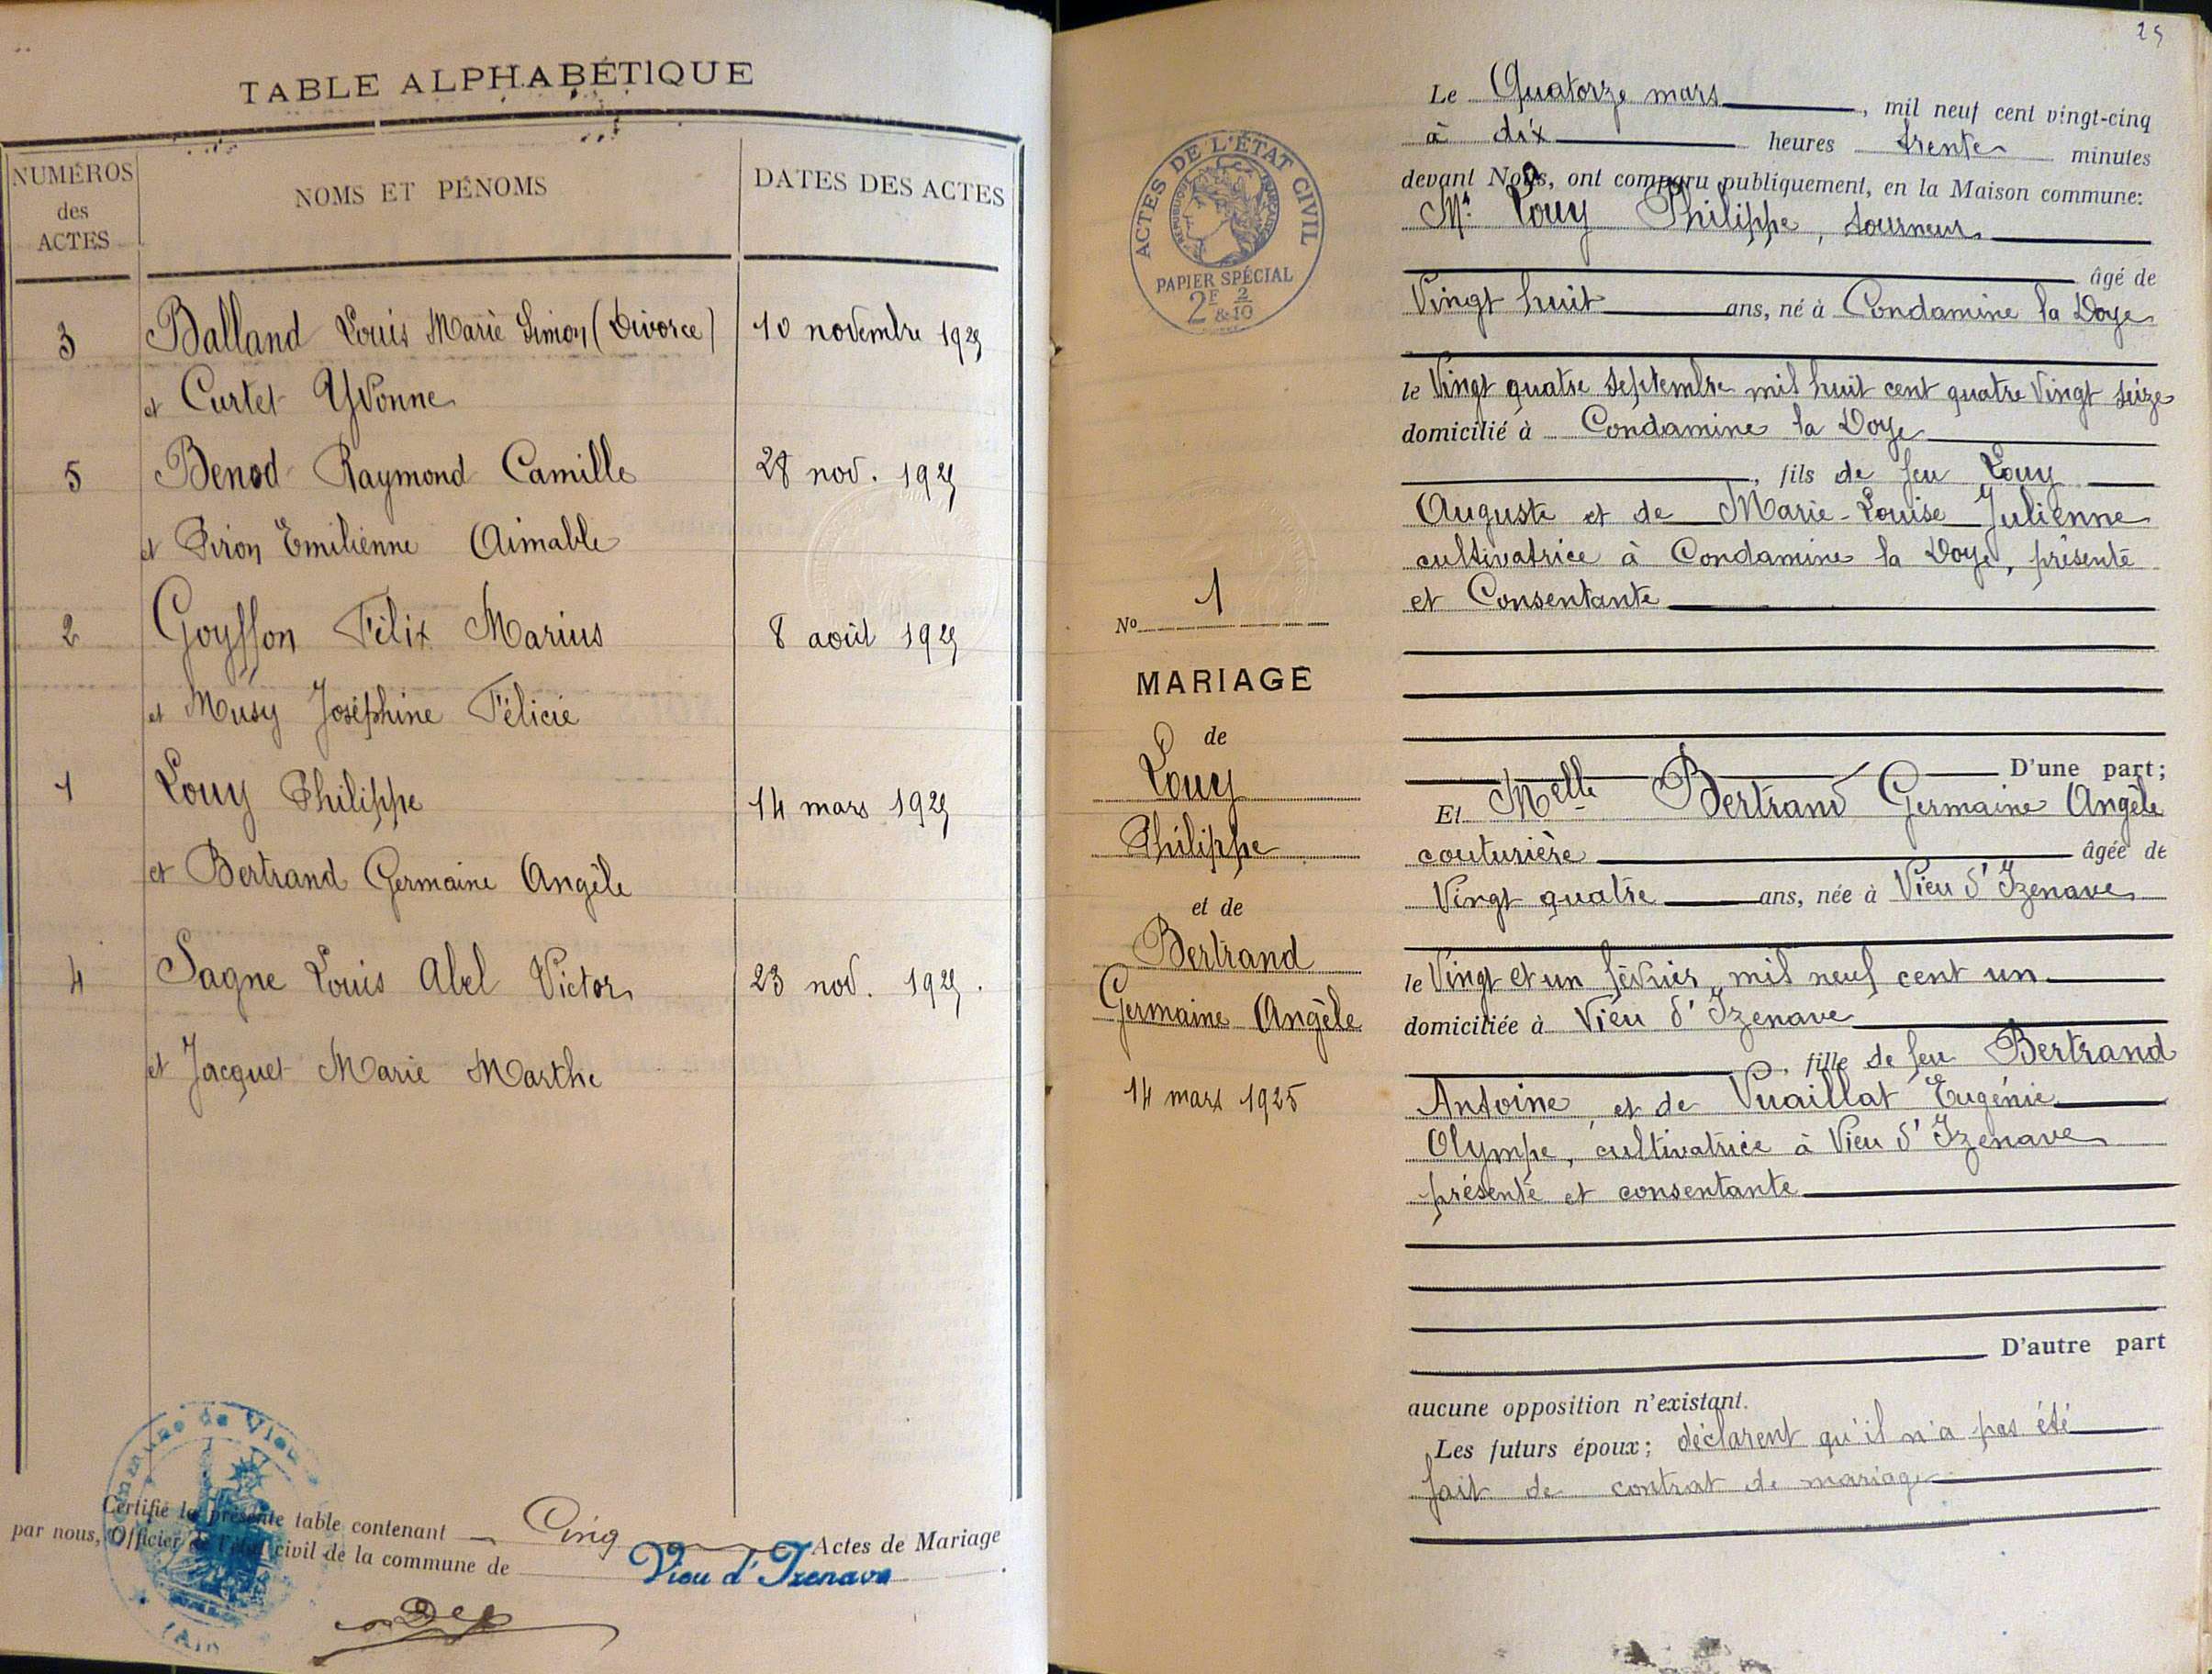 TABLE ALPHABÉTIQUE
NUMÉROS
des
ACTES
NOMS ET PÉNOMS
DATES DES ACTES
3 Balland Louis Marie Simon (Divorce) 10 novembre 1925
et Curtet Yvonne
5 Benod Raymond Camille 28 nov. 1925
et Piron Emilienne Aimable
2 Goyffon Félix Marius 8 août 1925
et Musy Joséphine Félicie
1 Louy Philippe 14 mars 1925
et Bertrand Germaine Angèle
4 Sagne Louis Abel Victor 23 nov. 1925.
et Jacquet Marie Marthe
Commune de Vieu
(Ain)
Certifié la présente table contenant Cinq Actes de Mariage
par nous, Officier de l'état civil de la commune de Vieu d'Izenave
25
ACTES DE L'ÉTAT CIVIL
RÉPUBLIQUE FRANÇAISE
PAPIER SPÉCIAL
2F & 2/10
No 1
MARIAGE
de
Louy
Philippe
et de
Bertrand
Germaine Angèle
14 mars 1925
Le Quatorze mars, mil neuf cent vingt-cinq
à dix heures trente minutes
devant Nous, ont comparu publiquement, en la Maison commune:
Mr. Louy Philippe, tourneur
âgé de
Vingt huit ans, né à Condamine la Doye
le Vingt quatre septembre mil huit cent quatre Vingt seize
domicilié à Condamine la Doye
, fils de feu Louy
Auguste et de Marie-Louise Julienne
cultivatrice à Condamine la Doye, présente
et Consentante
D'une part;
Et Melle Bertrand Germaine Angèle
couturière âgée de
Vingt quatre ans, née à Vieu d'Izenave
le Vingt et un février mil neuf cent un
domiciliée à Vieu d'Izenave
, fille de feu Bertrand
Antoine et de Vuaillat Eugénie
Olympe, cultivatrice à Vieu d'Izenave
présente et consentante
D'autre part
aucune opposition n'existant.
Les futurs époux; déclarent qu'il n'a pas été
fait de contrat de mariage